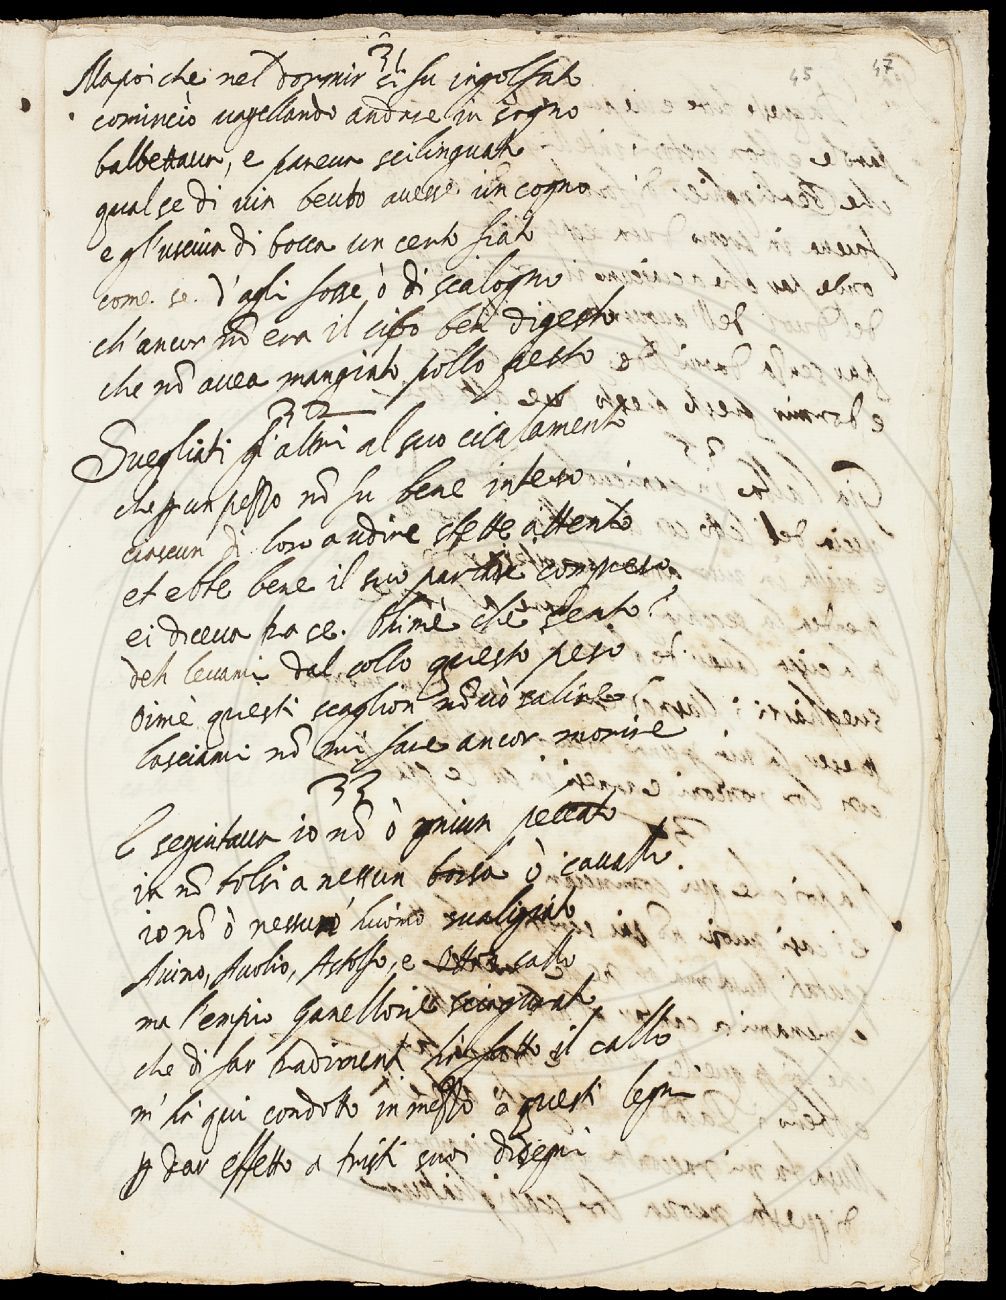 45 47
31
Ma poi che nel dormir ei fu ingolfato
cominciò vagellando andare in sogno
balbettava, e pareva scilinguato
qual se di vin beuto avesse un cogno
e gl'usciva di bocca un certo fiato
come se d'agli fosse ò di scalogno
ch'ancor nõ era il cibo ben digesto
che nõ avea mangiato pollo pesto
32
Svegliati gl'altri al suo cicalamento
che ꝑ un pezzo nõ fu bene inteso
ciascun di loro a udire stette attento
et ebbe bene il suo parlare compreso
ei diceva fra se. Ohimè che sento?
deh levami dal collo questo peso
oimè questi scaglion nõ vò salire
lasciami nõ mi fare ancor morire
33
E seguitava io nõ ò gniun peccato
io nõ tolsi a nessun borsa ò cavallo
io nõ ò nessuno huomo svaligiato
Avino, Avolio, Astolfo, e sallo
ma l'empio Ganellone sciagurato
che di far tradimenti hà fatto il callo
m'hà qui condotto in mezzo à questi legni
ꝑ dar effetto a tristi suoi disegni